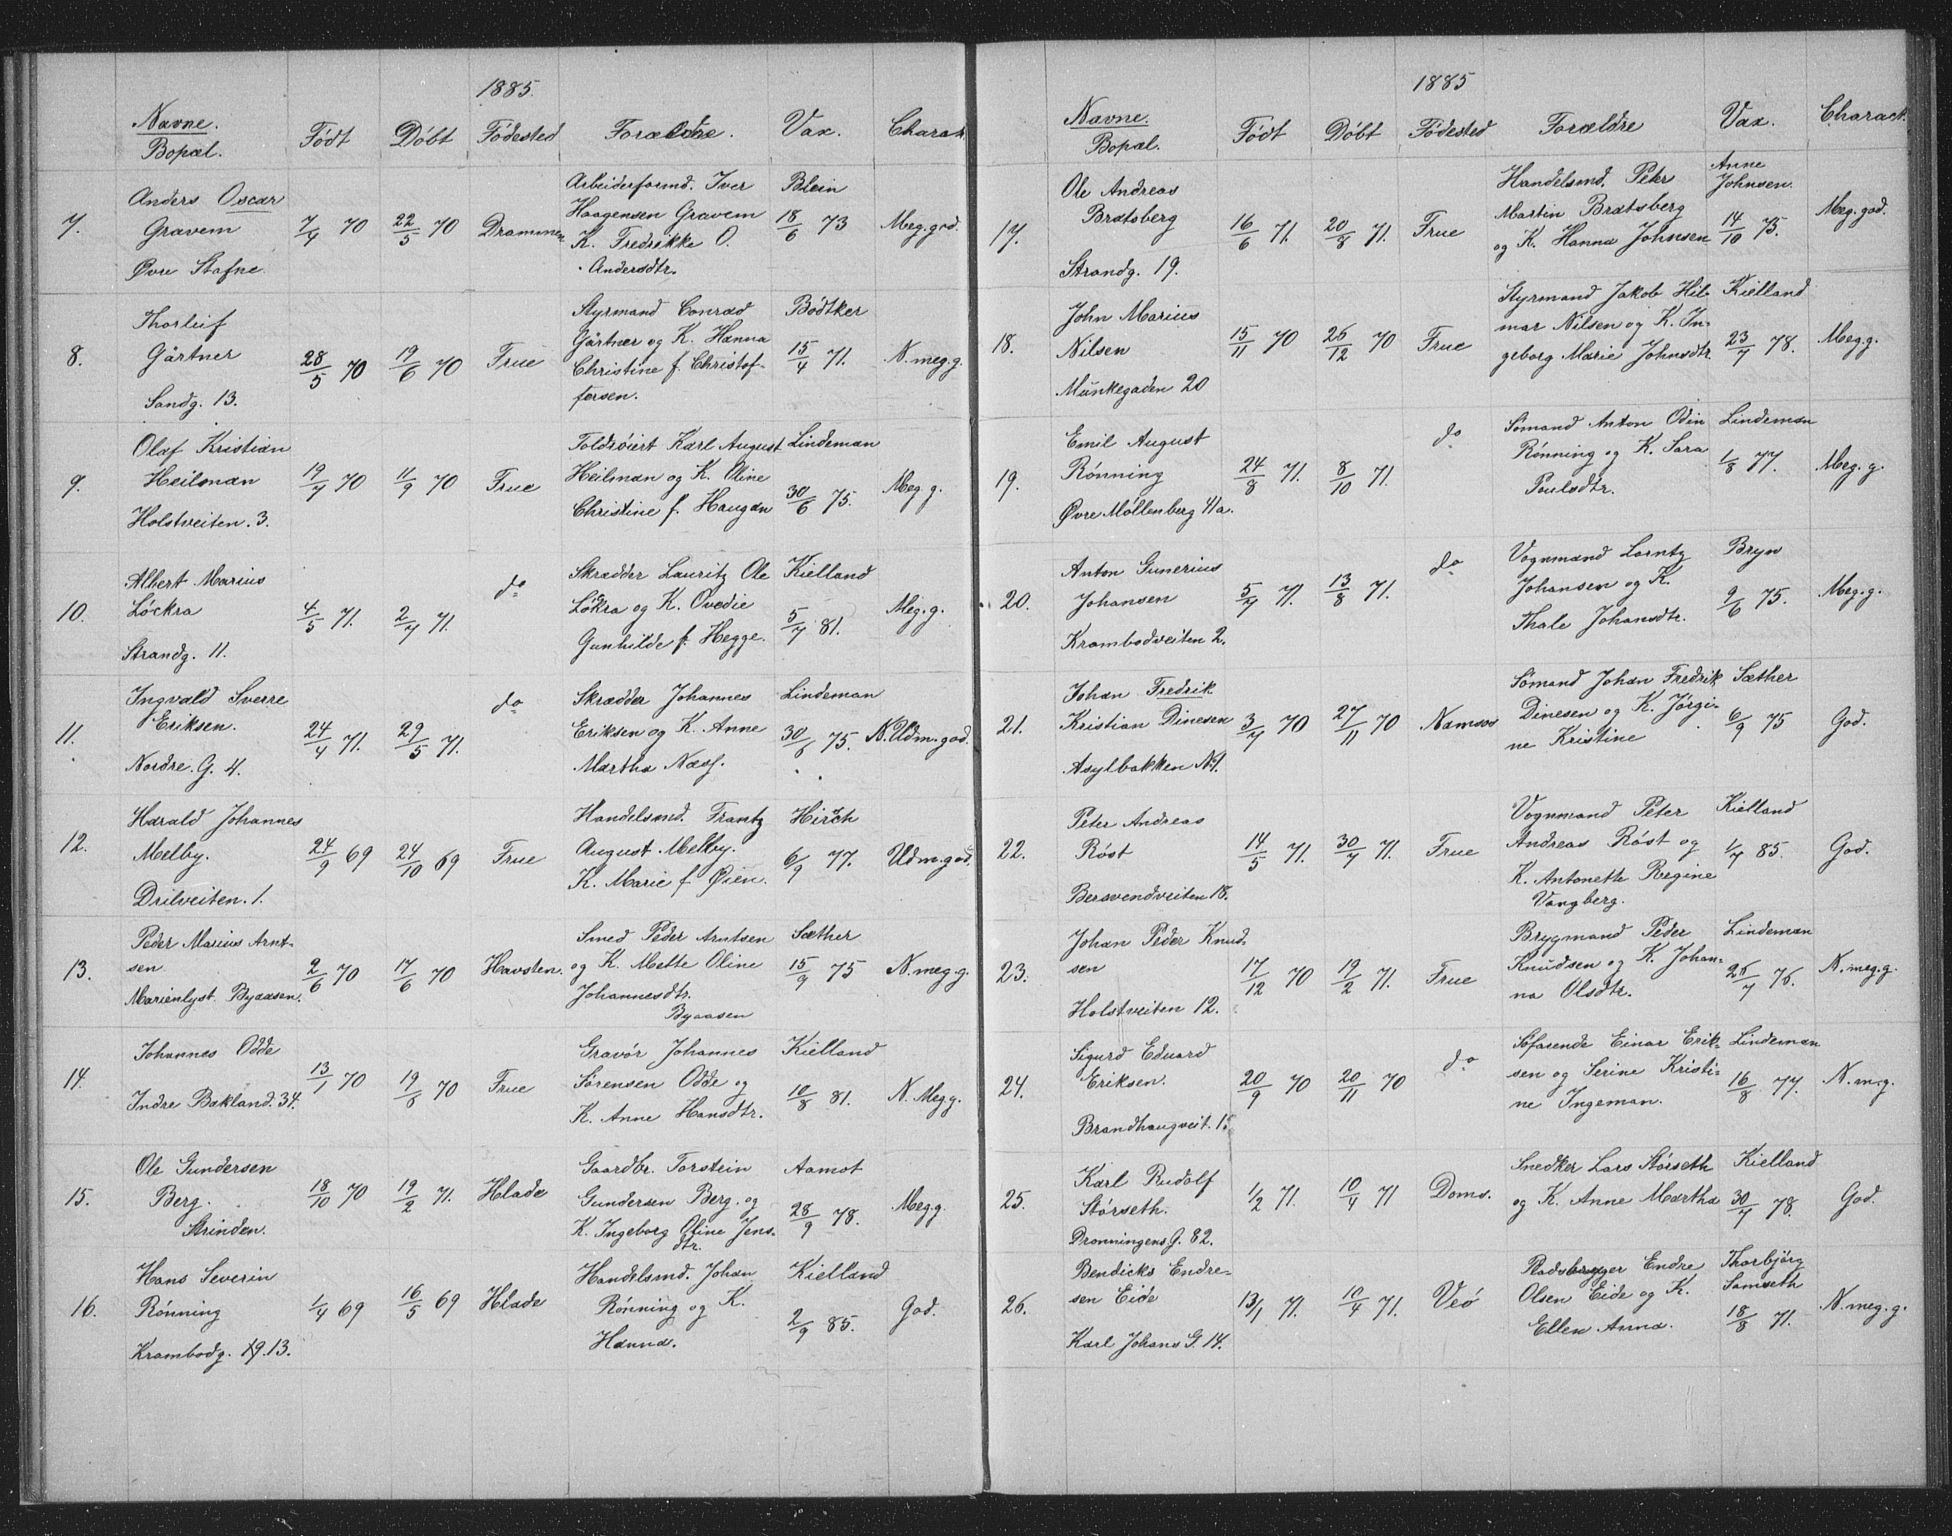 1885.
Navne.
Bopæl.
Født
Døbt
Fødested
Forældre.
Vax.
Charakt
7.
Anders Oscar
Gravem
Øvre Stafne.
7/4 70
22/5 70
Drammen
Arbeiderformd. Iver
Haagensen Gravem
K. Fredrikke O.
Andersdtr.
Blein
18/6 73
Meg. god.
8.
Thorleif
Gärtner
Sandg. 13.
28/5 70
19/6 70
Frue
Styrmand Conrad
Gärtner og K. Hanna
Christine f. Christof-
fersen.
Bødtker
15/4 71.
N. meg. g.
9.
Olaf Kristian
Heilman
Holstveiten. 3.
19/7 70
11/9 70
Frue
Toldrøiert Karl August
Heilman og K. Oline
Christine f. Haugan
Lindeman
30/6 75.
Meg. g.
10.
Albert Marius
Løckra
Strandg. 11.
4/5 71.
2/7 71.
do
Skrædder Lauritz Ole
Løkra og K. Ovedie
Gunhilde f. Hegge.
Kielland
5/7 81.
Meg. g.
11.
Ingvald Sverre
Eriksen.
Nordre. G. 4.
24/4 71.
29/5 71.
do
Skrædder Johannes
Eriksen og K. Anne
Martha Næss.
Lindeman
30/6 75.
N. Udm. god.
12.
Harald Johannes
Melby.
Drilveiten. 1.
24/9 69
24/10 69
Frue
Handelsmd. Frantz
August Melby.
K. Marie f. Øien.
Hirch
6/9 77.
Udm. god.
13.
Peder Marius Arnt-
sen
Marienlyst. Byaasen.
2/6 70
17/6 70
Havsten.
Smed Peder Arntsen
og K. Mette Oline
Johannesdtr.
Byaasen
Sæther
15/9 75
N. meg. g.
14.
Johannes Odde
Indre Bakland. 34.
13/1 70
19/6 70
Frue
Gravør Johannes
Sørensen Odde og
K. Anne Hansdtr.
Kielland
10/8 81.
N. Meg. g.
15.
Ole Gundersen
Berg.
Strinden.
18/10 70
19/2 71.
Hlade
Gaardbr. Torstein
Gundersen Berg. og
K. Ingeborg Oline Jens-
dtr.
Aamot
28/9 78.
Meg. g.
16.
Hans Severin
Rønning
Krambodg. 13.
1/4 69
16/5 69
Hlade
Handelsmd. Johan
Rønning og K.
Hanna.
Kielland
2/9 85.
God.
1885
Navne.
Bopæl.
Født
Døbt
Fødested
Forældre
Vax.
Charact.
17.
Ole Andreas
Bratsberg
Strandg. 19.
16/6 71.
20/8 71.
Frue
Handelsmd. Peter
Martin Bratsberg
og K. Hanna Johnsen
Anne
Johnsen.
14/10 75.
Meg. god.
18.
John Marius
Nilsen
Munkegaden 20
15/11 70
26/12 70
Frue
Styrmand Jakob Hil-
mar Nilsen og K. In-
geborg Marie Johnsdtr.
Kielland
23/7 78.
Meg. g.
19.
Emil August
Rønning
Øvre Møllenberg 41a.
24/8 71.
8/10 71.
do
Sømand Anton Odin
Rønning og K. Sara
Poulsdtr.
Lindeman
1/8 77.
Meg. g.
20.
Anton Gunerius
Johansen
Krambodveiten 2.
5/7 71.
13/8 71.
do
Vognmand Lorntz
Johansen og K.
Thale Johansdtr.
Bryn
9/6 75.
Meg. g.
21.
Johan Fredrik
Kristian Dinesen
Asylbakken No 1.
3/7 70
27/11 70
Namsos
Sømand Johan Fredrik
Dinesen og K. Jørgi-
ne Kristine
Sæther
6/9 75
God.
22.
Peter Andreas
Røst
Bersvendveiten 18.
14/5 71.
30/7 71.
Frue
Vognmand Peter
Andreas Røst og
K. Antonette Regine
Vangberg.
Kielland
1/7 85.
God.
23.
Johan Peder Knud-
sen
Holstveiten 12.
17/12 70
19/2 71.
Frue
Brygmand Peder
Knudsen og K. Johan-
na Olsdtr.
Lindeman
26/7 76.
N. meg. g.
24.
Sigurd Eduard
Eriksen.
Brandhaugveit. 1.
20/9 70
20/11 70
do
Søfarende Einar Erik-
sen og Serine Kristi-
ne Ingeman.
Lindeman
16/8 77.
N. m. g.
25.
Karl Rudolf
Størseth.
Dronningens G. 82.
1/2 71.
10/4 71
Doms.
Snedker Lars Størseth
og K. Anne Martha
Kielland
30/7 78.
God.
26.
Bendicks Endre-
sen Eide
Karl Johans G. 14.
13/1 71.
10/4 71.
Veø
Pladsbruger Endre
Olsen Eide og K.
Ellen Anna.
Thorbjörg
Samseth
18/8 71.
N. meg. g.